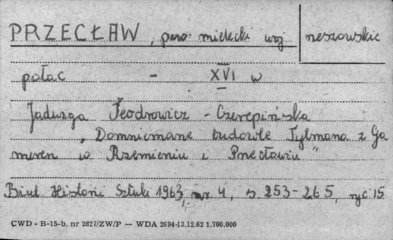 PRZECŁAW, pow. mielecki woj rzeszowskie
pałac - XVI w
Jadwiga Feodrowicz - Czerepińska
"Domniemane budowle Tylmana z Ga
meren w Rzemieniu i Przecławiu"
Biul. Historii Sztuki 1963 nr. 4, s 253-265, ryc 15
CWD - B-15-b, nr 2627/ZW/P — WDA 2694-13.12.62 1.700.000